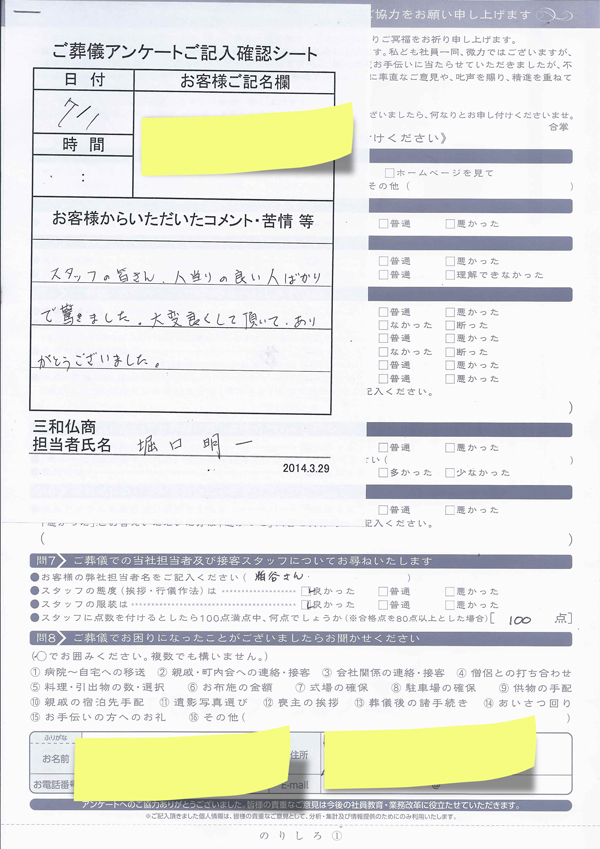 ご協力をお願い申し上げます
りご冥福をお祈り申し上げます。
す。私ども社員一同、微力ではございますが、
お手伝いに当たらせていただきましたが、不
に率直なご意見や、叱声を賜り、精進を重ねて
ざいましたら、何なりとお申し付けくださいませ。
合掌
けください》
□ホームページを見て
その他( )
□普通 □悪かった
□普通 □悪かった
□普通 □理解できなかった
□普通 □悪かった
□なかった □断った
□普通 □悪かった
□なかった □断った
□普通 □悪かった
記入ください。
)
□普通 □悪かった
さい( )
□多かった □少なかった
□普通 □悪かった
記入ください。
( )
ご葬儀アンケートご記入確認シート
日付 お客様ご記名欄
7/11
時間
:
お客様からいただいたコメント・苦情 等
スタッフの皆さん、人当りの良い人ばかり
で驚きました。大変良くして頂いて、あり
がとうございました。
三和仏商
担当者氏名 堀口明一
2014.3.29
問7 ご葬儀での当社担当者及び接客スタッフについてお尋ねいたします
●お客様の弊社担当者名をご記入ください( 粕谷さん )
●スタッフの態度(挨拶・行儀作法)は □良かった □普通 □悪かった
●スタッフの服装は □良かった □普通 □悪かった
●スタッフに点数を付けるとしたら100点満点中、何点でしょうか(※合格点を80点以上とした場合)[ 100 点]
問8 ご葬儀でお困りになったことがございましたらお聞かせください
(○でお囲みください。複数でも構いません。)
①病院〜自宅への移送 ②親戚・町内会への連絡・接客 ③会社関係の連絡・接客 ④僧侶との打ち合わせ
⑤料理・引出物の数・選択 ⑥お布施の金額 ⑦式場の確保 ⑧駐車場の確保 ⑨供物の手配
⑩親戚の宿泊先手配 ⑪遺影写真選び ⑫喪主の挨拶 ⑬葬儀後の諸手続き ⑭あいさつ回り
⑮お手伝いの方へのお礼 ⑯その他( )
ふりがな
お名前 住所
お電話番 E-mail @
アンケートへのご協力ありがとうございました。皆様の貴重なご意見は今後の社員教育・業務改革に役立たせていただきます。
※ご記入頂きました個人情報は、皆様の貴重なご意見として、分析・集計及び情報提供のためにのみ利用いたします。
のりしろ①